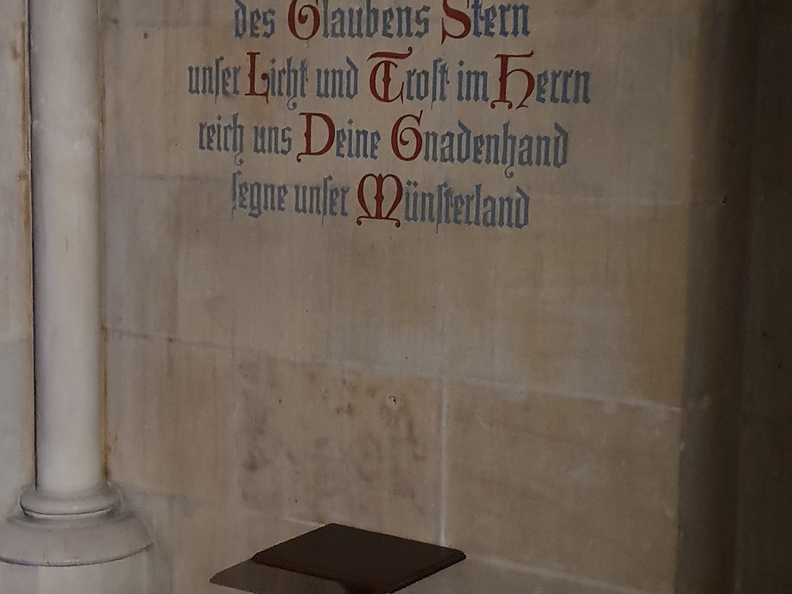 des Glaubens Stern
unser Licht und Trost im Herrn
reich uns Deine Gnadenhand
segne unser Münsterland